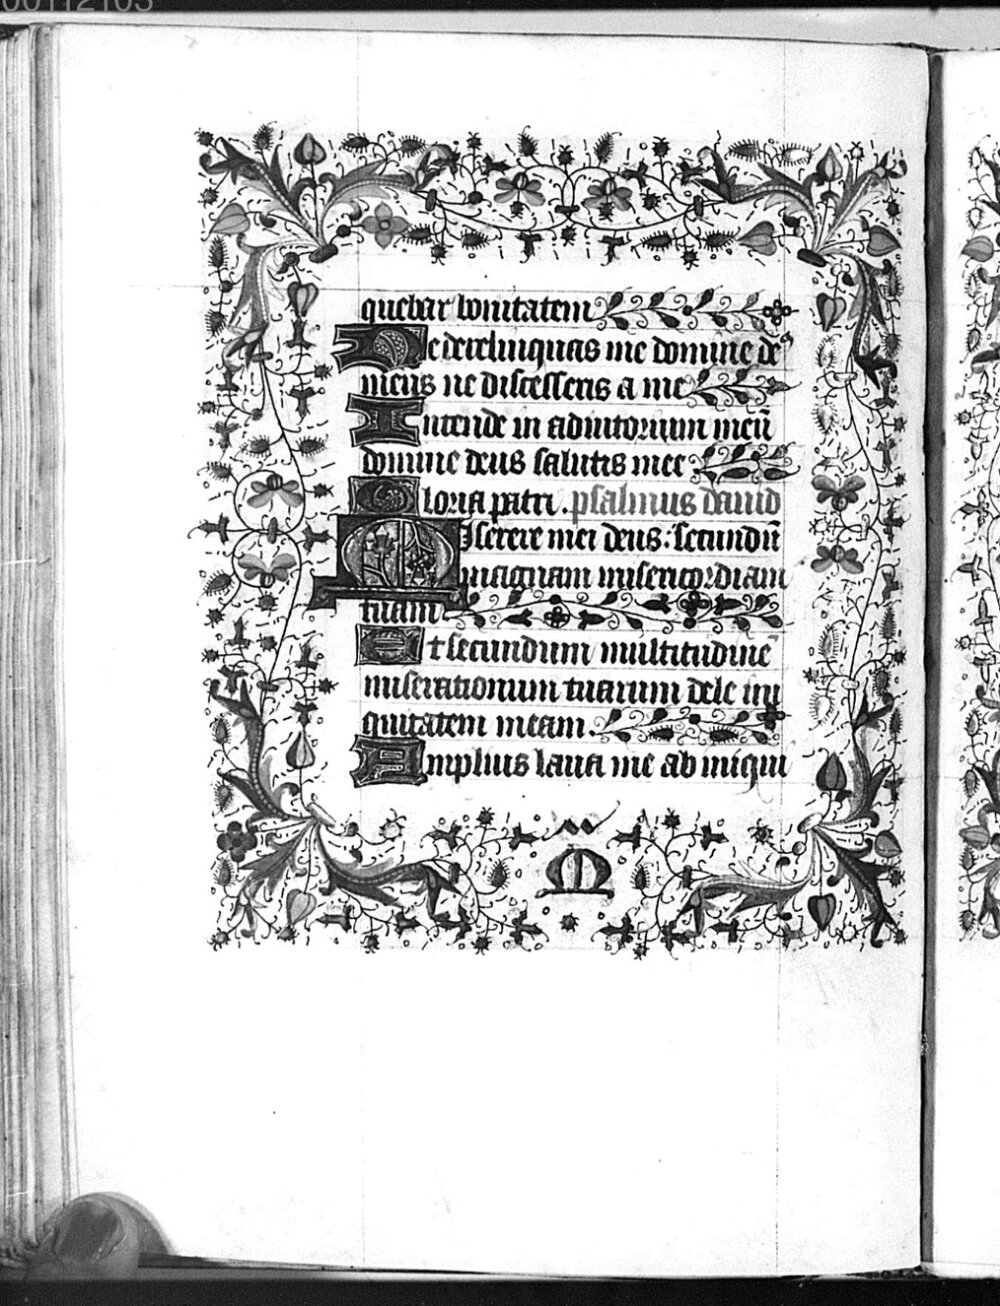 00112103
quebar bonitatem
Ne derelinquas me domine de⁹
meus ne discesseris a me
Intende in adiutorium meū
domine deus salutis mee
Gloria patri. psalmus dauid
Miserere mei deus: secundū
magnam misericordiam
tuam
Et secundum multitudinē
miserationum tuarum dele ini
quitatem meam.
Amplius laua me ab iniqui
M